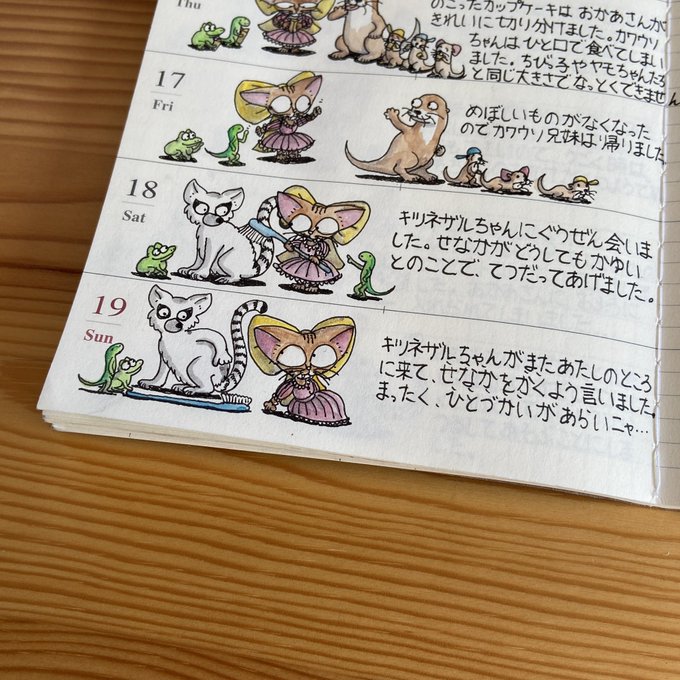 Thu
のこったカップケーキは おかあさんが
きれいに切り分けました。カワウソ
ちゃんは ひと口で食べてしまい
ました。ちびろやヤモちゃんたち
と同じ大きさで なっとくできません
17
Fri
めぼしいものがなくなった
のでカワウソ兄妹は帰りました
18
Sat
キツネザルちゃんにぐうぜん会いま
した。せなかがどうしてもかゆい
とのことで てつだってあげました。
19
Sun
キツネザルちゃんがまたあたしのところ
に来て、せなかをかくよう言いました
まったく、ひとづかいがあらいニャ…